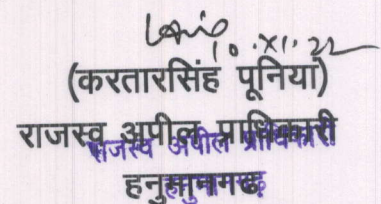 10.XI.22
(करतारसिंह पूनिया)
राजस्व अपील प्राधिकारी
राजस्व अपील प्राधिकारी
हनुमानगढ़